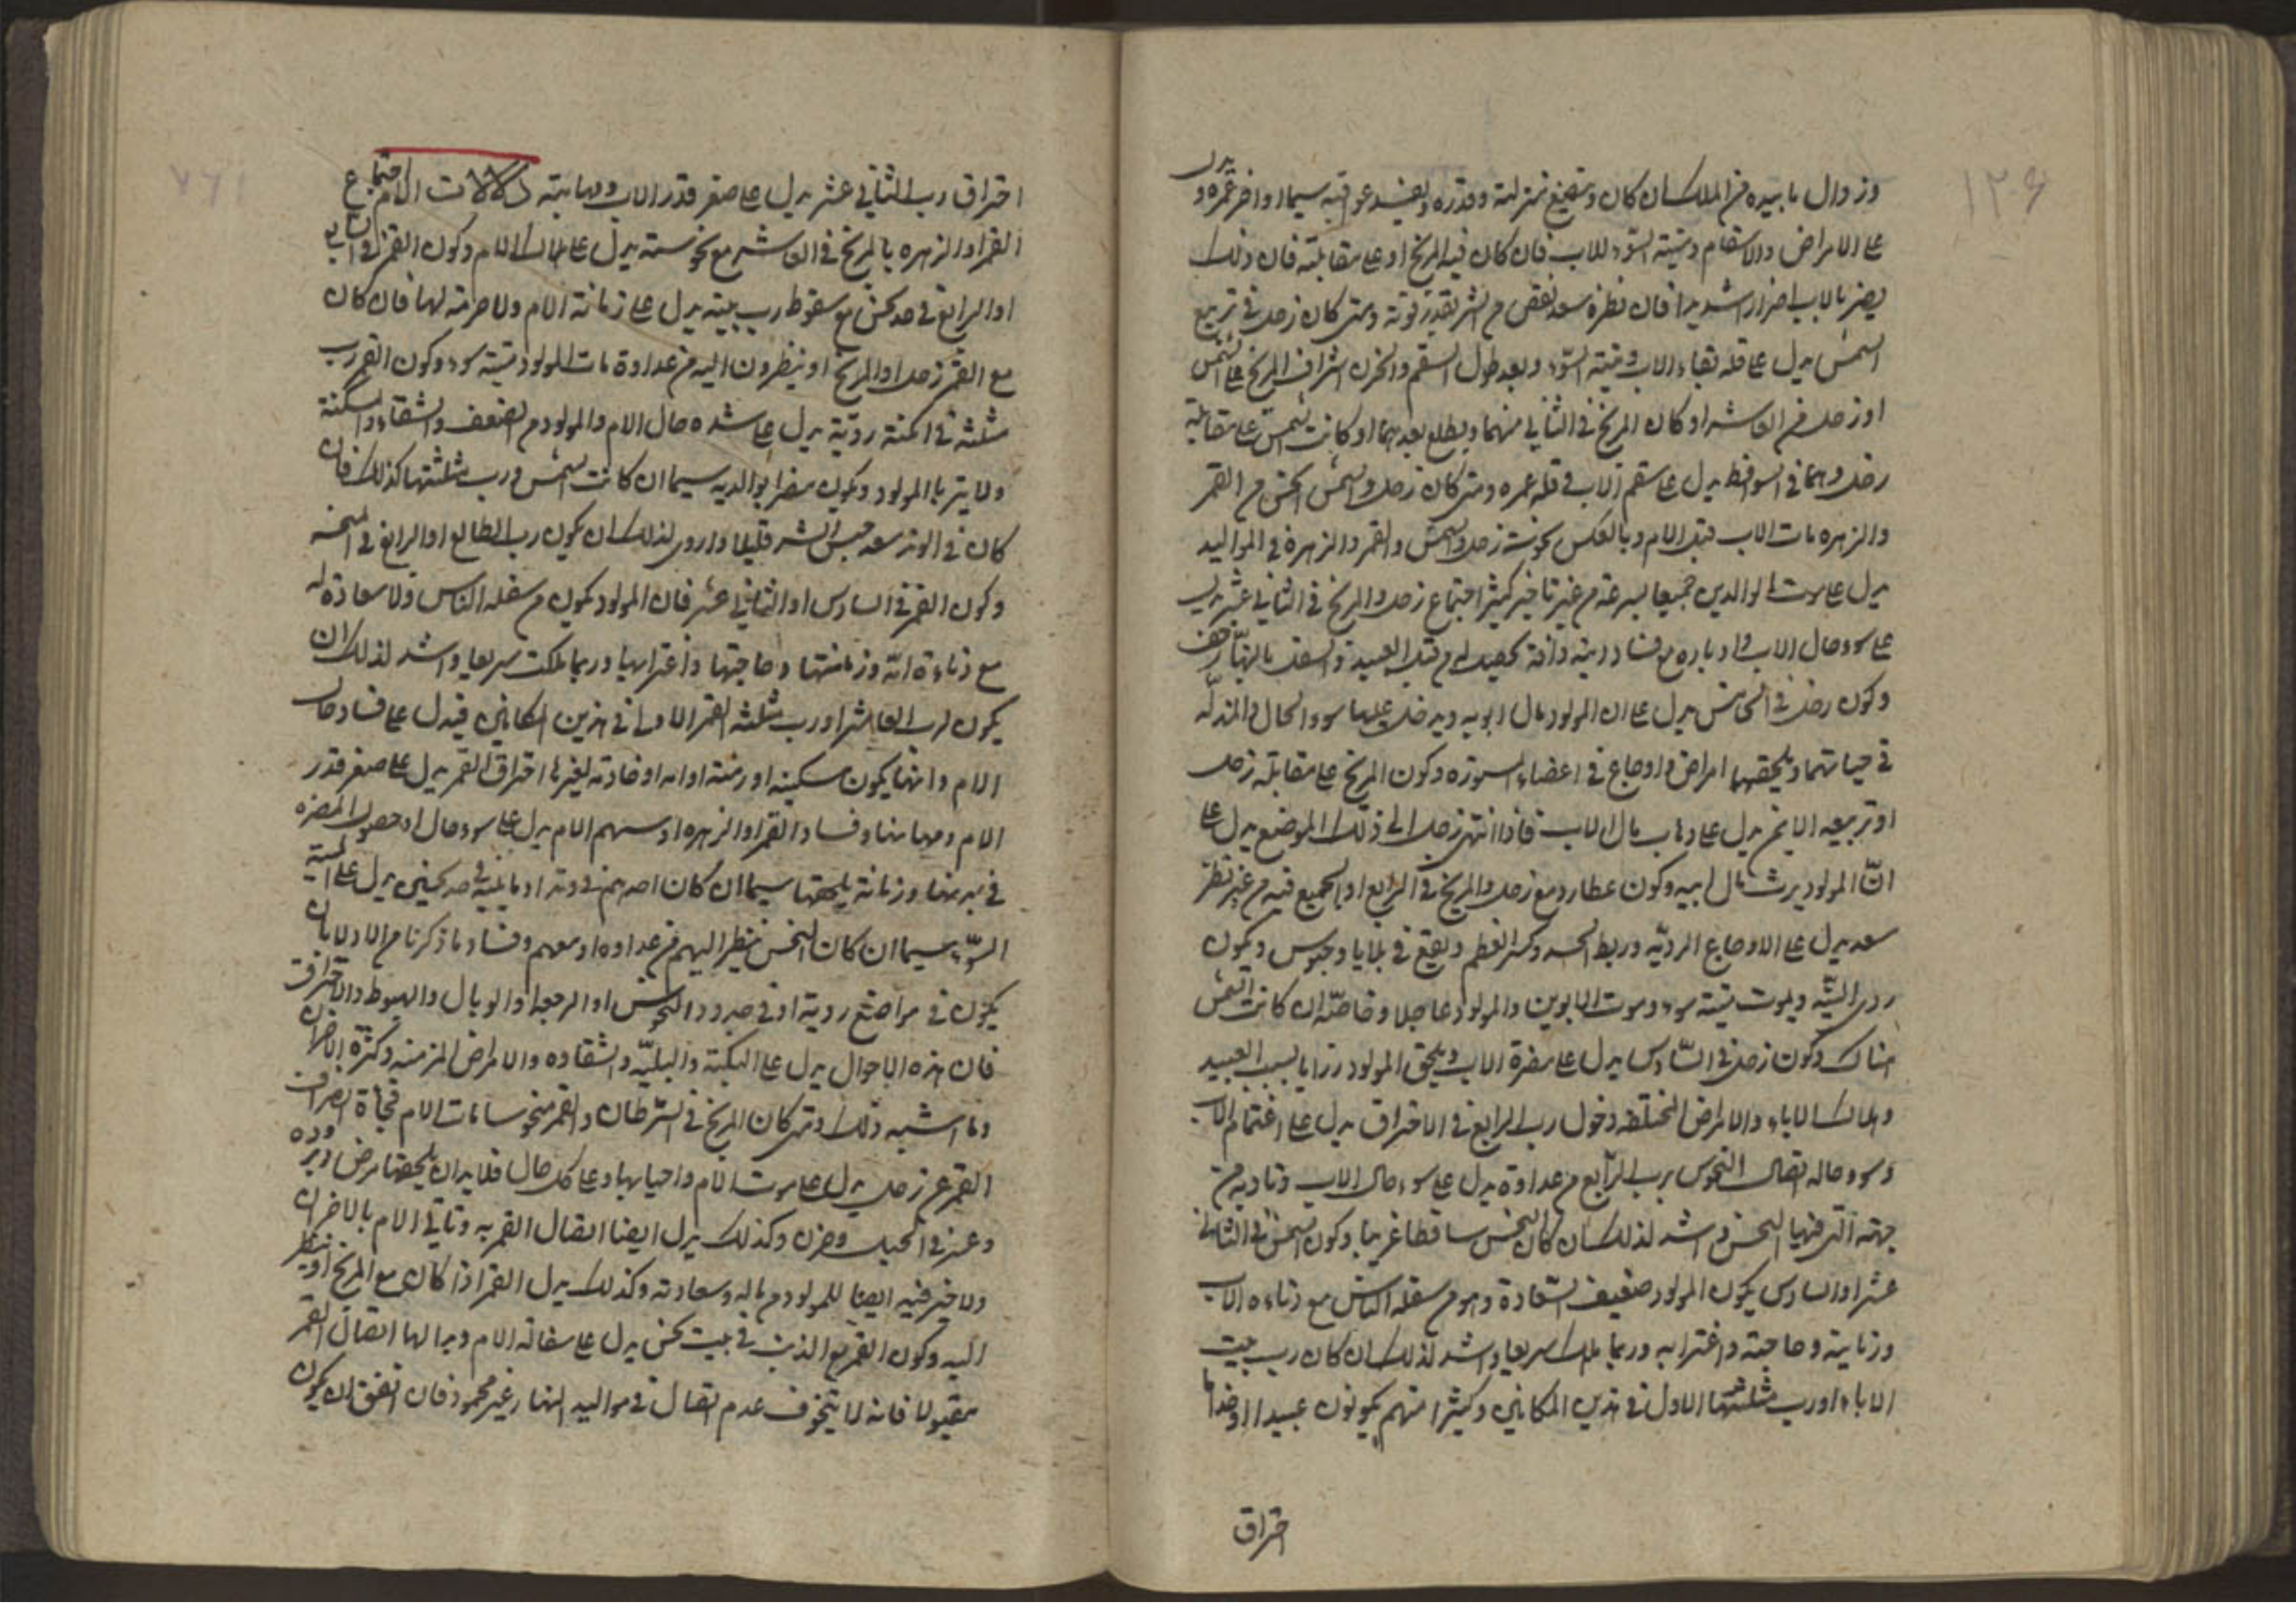 ١٢۶
وزوال ما بيده من الملك ان كان وتضيع منزلته وقدره ويفسد عواقبه سيما اواخر عمره ويدل
على الامراض والاسقام وميتة السوء للاب فان كان فيه المريخ او على مقابلته فان ذلك
يضر بالاب اضرارا شديدا فان نظره سعد نقص من الشر بقدر قوته ومتى كان زحل في تربيع
الشمس يدل على قلة بقاء الاب وميتة السوء وبعد طول السقم والحزن اشراف المريخ على الشمس
او زحل من العاشر او كان المريخ في الثاني منهما ويطلع بعدهما او كانت الشمس على مقابلة
زحل وهما في السواقط يدل على سقم الاب وقلة عمره ومتى كان زحل والشمس انحس من القمر
والزهره مات الاب قبل الام وبالعكس نحوسة زحل والشمس والقمر والزهرة في المواليد
يدل على موت الوالدين جميعا بسرعة من غير تاخير كثير اجتماع زحل والمريخ في الثاني عشر يدل
على سوء حال الاب وادباره مع فساد دينه وآفة تحصل له من قبل العبيد والسفل
وكون زحل في الخامس يدل على ان المولود مال ابويه ويدخل عليهما سوء الحال والمذلّه
في حياتهما ويلحقهما امراض واوجاع في اعضاء المستورة وكون المريخ على مقابلة زحل
او تربيعه الايمن يدل على ذهاب مال الاب فاذا انتهى زحل الى ذلك الموضع يدل على
انّ المولود يرث مال ابيه وكون عطارد مع زحل والمريخ في الرابع او الجميع فيه من غير نظر
سعد يدل على الاوجاع الرديّه وربط الجسد وكسر العظم ويقع في بلايا وحبوس ويكون
ردى ويموت ميتة سوء وموت الابوين والمولود عاجلا وخاصّة ان كانت الشمس
هناك وكون زحل في السّادس يدل على مضرة الاب ويلحق المولود رزايا بسبب العبيد
وهلاك الاباء والامراض المختلفه دخول رب الرابع في الاحتراق يدل على اغتمام الاب
وسوء حاله اتصال النحوس برب الرّابع من عداوة يدل على سوء حال الاب وتاذيه من
جهته التى فيها النحس واشد لذلك ان كان النحس ساقطا غريبا وكون الشمس في الثاني
عشر او السادس يكون المولود ضعيف السّعادة وهو من سفلة الناس مع دناءة الاب
وزمانته وحاجته واغترابه وربما هلك سريعا واشد لذلك ان كان رب بيت
الاباء او رب مثلثتها الاول في هذين المكانين وكثيرا منهم يكونون عبيدا او خداما
احتراق
احتراق رب الثاني عشر يدل على صغر قدر الاب ومهانته دلالات الام اجتماع
القمر او الزهره بالمريخ في العاشر مع نحوسته يدل على هلاك الام وكون القمر في السابع
او الرابع في حد نحس مع سقوط رب بيته يدل على زمانة الام ولا حرمة لها فان كان
مع القمر زحل او المريخ او ينظرون اليه من عداوة مات المولود ميتة سوء وكون القمر رب
مثلثه في امكنة رديّة يدل على شده حال الام والمولود من الضعف والشقاء والمسكنة
ولا يتربا المولود ويكون مضرا بوالديه سيما ان كانت الشمس ورب مثلثتها كذلك فان
كان في الوتد سعد حبس الشر قليلا واردى لذلك ان يكون رب الطالع او الرابع في
وكون القمر في السادس او الثاني عشر فان المولود يكون من سفله الناس ولا سعادة له
مع دناءة امّه وزمانتها وحاجتها واغترابها وربما هلكت سريعا واشد لذلك ان
يكون رب العاشر او رب مثلثة القمر الاول في هذين المكانين فيدل على فساد حال
الام وانها يكون مسكينه او زمنة او امه او خادمة لغيرها احتراق القمر يدل على صغر قدر
الام ومهانتها وفساد القمر او الزهره او سهم الام يدل على سوء حال او حصول المضره
في بدنها وزمانة يلحقها سيما ان كان احدهم في وتد او ما يليه في حد نحس يدل على الميتة
السّوء سيما ان كان النحس ينظر اليهم من عداوه او معهم وفساد ما ذكرنا من الادلاء ان
يكون في مواضع ردية او في حدود النحوس او الرجعة او الوبال والهبوط والاحتراق
فان هذه الاحوال يدل على النكبة والبليّه والشقاوه والامراض المزمنه وكثرة الاحزان
وما اشبه ذلك ومتى كان المريخ في السّرطان والقمر منحوسا مات الام فجأة انصراف
القمر عن زحل يدل على موت الام واحيانها وعلى كل حال فلا بد ان يلحقها مرض
وعسر في الحبل وحزن وكذلك يدل ايضا اتصال القمر به وتاتي الام بالاحزان
ولا خير فيه ايضا للمولود من ماله وسعادته وكذلك يدل القمر اذا كان مع المريخ او ينظر
اليه وكون القمر مع الذنب في بيت نحس يدل على سفالة الام اتصال القمر
مقبولا فانه لا يتخوف عدم اتصال في مواليد النهار غير محمود فان اتفق ان يكون